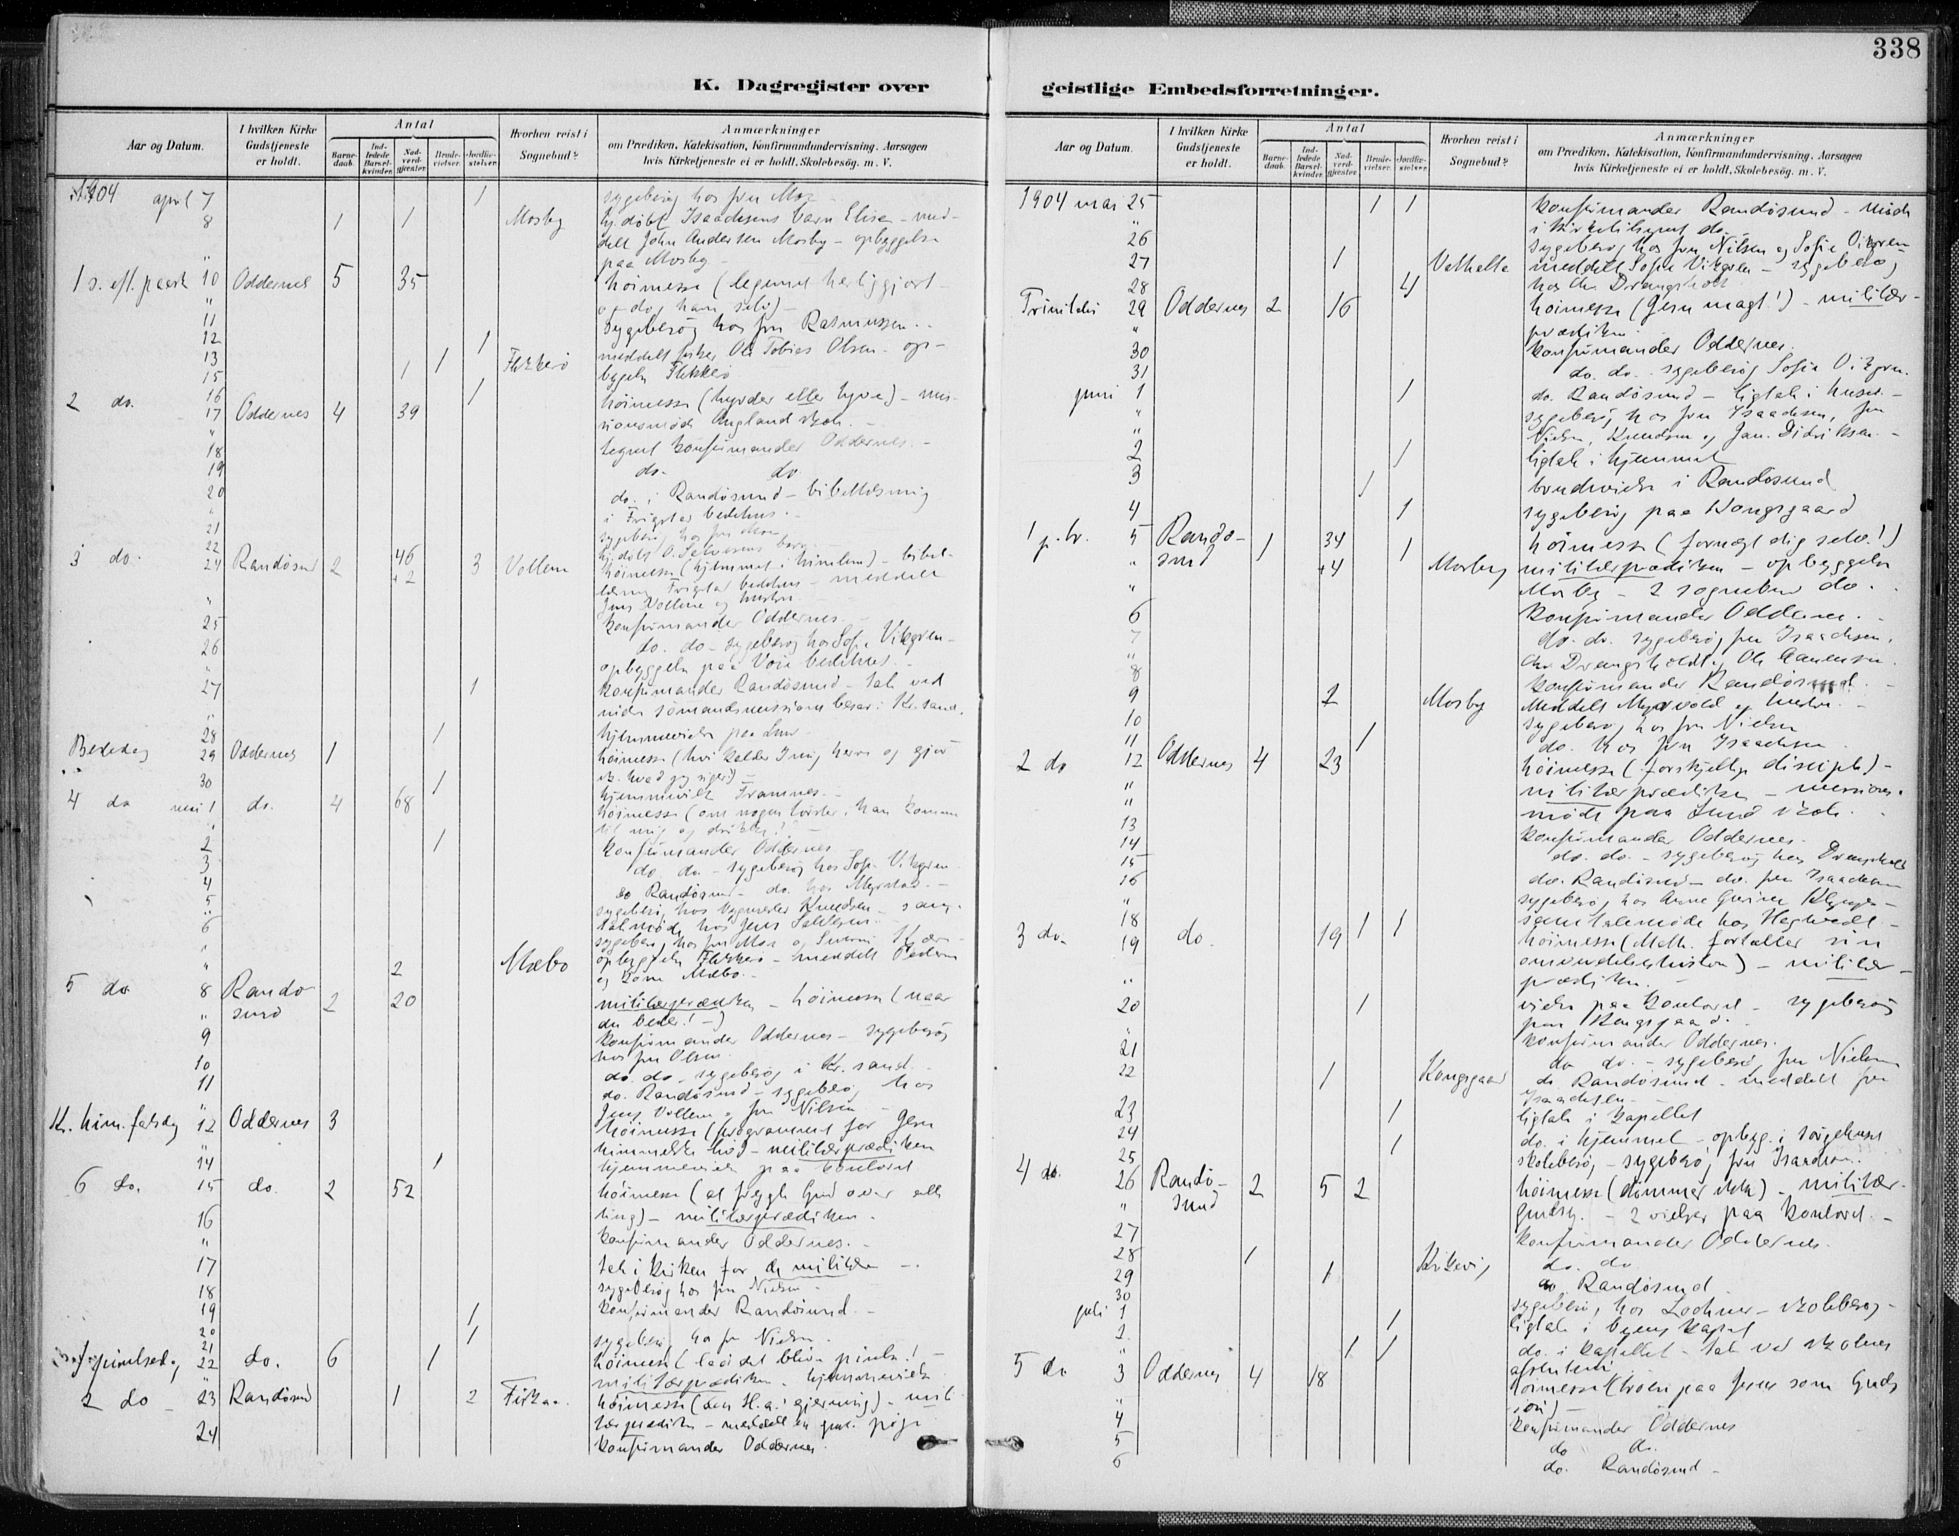 338
K. Dagregister over
geistlige Embedsforretninger.
Aar og Datum.
I hvilken Kirke Gudstjeneste er holdt.
Antal
Barnedaab.
Indledede Barselkvinder.
Nadverdgjester
Brudevielser.
Jordfæstelser.
Hvorhen reist i Sognebud?
Anmærkninger
om Prædiken, Katekisation, Konfirmandundervisning, Aarsagen
hvis Kirketjeneste ei er holdt, Skolebesøg. m. V.
1904 april 7 1 sygebesøg hos fru Moe
8 1 1 Mosby hj. døbt Isaachsens barn Elisa - med-
delt John Andersen Mosby - opbyggelse
paa Mosby -
1 s. eft. paask 10 Oddernes 5 35 høimesse (legemet herliggjort -
og dog ham selv) -
11 sygebesøg hos fru Rasmussen.
12 1
13 1 1 Flekkerø meddelt fisker Ole Tobias Olsen - op-
15 byggelse Flekkerø
16 1
2 do. 17 Oddernes 4 39 høimesse (hyrder eller tyve) - mis-
sionsmøde Augland skole. -
18 tegnet konfirmander Oddernes. -
19 do. do.
20 do. i Randøsund - bibellæsning
i Frigstad bedehus. -
21 sygebesøg hos fru Moe
22 hj. døbt O. Salvesens barn
3 do. 24 Randøsund 2 46 +2 3 Vollene høimesse (hjemmet i himlen) - bibel-
læsning Frigstad bedehus - meddelt
Jens Vollene og hustru. -
25 konfirmander Oddernes -
26 do. do - sygebesøg hos Sofie Vikgren -
opbyggelse paa Voie bedehus. -
27 1 konfirmander Randøsund - tale ved
sømandsmissions i Kr.sand.
28 1 hjemmevielse paa Lund -
Bededag 29 Oddernes 1 høimesse (hvi kalder I mig herre og gjør
ik. hvad jeg siger?) -
30 1 hjemmevielse Framnes. -
4 do mai 1 do. 4 68 høimesse (om nogen tørster, han komme
til mig og drikke!) -
2 1 konfirmander Oddernes
3 do. do. - sygebesøg hos Sofie Vikgren
4 do Randøsund - do. hos Myrstad. -
5 sygebesøg hos Knudsen - sam-
talemøde hos Jens
6 sygebesøg hos fru Moe og
2 Mæbø opbyggelse Flekkerø - meddelt Pedersen
og kone Mæbø. -
5 do 8 Randøsund 2 20 militærprædiken - høimesse (naar
du beder! -)
9 konfirmander Oddernes - sygebesøg
hos fru Olsen.
10 do. do. sygebesøg i Kr.sand. -
11 do. Randøsund - sygebesøg hos
Jens Vollene og fru Nilsen -
Kr. him. farsdag 12 Oddernes 3 høimesse (programmet for Jesu
himmelske liv) - militærprædiken
14 1 hjemmevielse paa kontoret
6 do. 15 do. 2 52 høimesse (at frygte Gud over alle
ting) - militærprædiken -
16 konfirmander Oddernes. -
17 tale i kirken for de militære -
18 sygebesøg hos fru Nielsen -
19 1 konfirmander Randøsund. -
20 1
21 sygebesøg hos fr Nielsen -
1 pinsedag 22 do. 6 1 høimesse (lad det blive pinse! -
militærprædiken - hjemmevielse
2 do - 23 Randøsund 1 2 høimesse (den H. a.' gjerning) - mili-
tærprædiken - meddelt en pige
24 konfirmander Oddernes.
1904 mai 25 1 1 konfirmander Randøsund - møde
i kirketilsynet do.
26 sygebesøg hos fru Nilsen og Sofie Vikgren
27 1 meddelt Sofie Vikgren - sygebesøg
28 4 hos Chr. Drangsholt
Trinitatis 29 Oddernes 2 16 høimesse (Jesu magt!) - militær-
prædiken
30 konfirmander Oddernes.
31 do. do. sygebesøg Sofie Vikgren.
juni 1 1 do. Randøsund - ligtale i huset -
sygebesøg hos fru Isaachsen, fru
Nielsen, Knudsen og Jan. Didriksen. -
2 1 ligtale i hjemmet
3 1 brudevielse i Randøsund
4 1 sygebesøg paa Kongsgaard
1 p. tr. 5 Randøsund 1 34 +4 1 Mosby høimesse (fornægt dig selv!)
militærprædiken - opbyggelse
Mosby - 2 sognebud do.
6 konfirmander Oddernes. -
7 do. do. sygebesøg fru Isaachsen,
Chr Drangsholdt,
8 konfirmander Randøsund. -
9 2 Mosby Meddelt Myrvold og hustru. -
10 sygebesøg hos fru Nielsen
11 1 do. hos fru Isaachsen
2 do 12 Oddernes 4 23 høimesse (forskjellige disciple) -
militærprædiken - missions-
møde paa Lund skole. -
13 konfirmander Oddernes. -
14 do. do. - sygebesøg hos Drangsholt
15 do. Randøsund - do. fru Isaachsen
16 sygebesøg hos Anne
18 1 1 samtalemøde hos
3 do. 19 do. 19 høimesse (Meth. fortæller sin
omvendelseshistorie) - militær-
prædiken. -
20 1 vielse paa kontoret - sygebesøg
paa Kongsgaard. -
konfirmander Oddernes.
21 do do. - sygebesøg fru Nielsen
22 1 Kongsgaard do Randøsund - meddelt fru
Isaachsen -
23 1 ligtale i kapellet
24 1 do. i hjemmet - opbyg. i sørgehuset
25 skolebesøg - sygebesøg fru Isaachsen.
4 do. 26 Randøsund 2 5 2 høimesse (dømmer ikke) - militær-
gudstj. - 2 vielser paa kontoret. -
27 konfirmander Oddernes
28 1 do. do
29 1 do Randøsund
30 sygebesøg hos Lochner - skolebesøg -
juli 1 1 ligtale i byens kapel
2 1 1 do. i kapellet - tale ved skolens
afslutning
5 do 3 Oddernes 4 18 høimesse (troen paa Jesus som Guds
søn) -
4 konfirmander Oddernes
5 do do.
6 do. Randøsund -